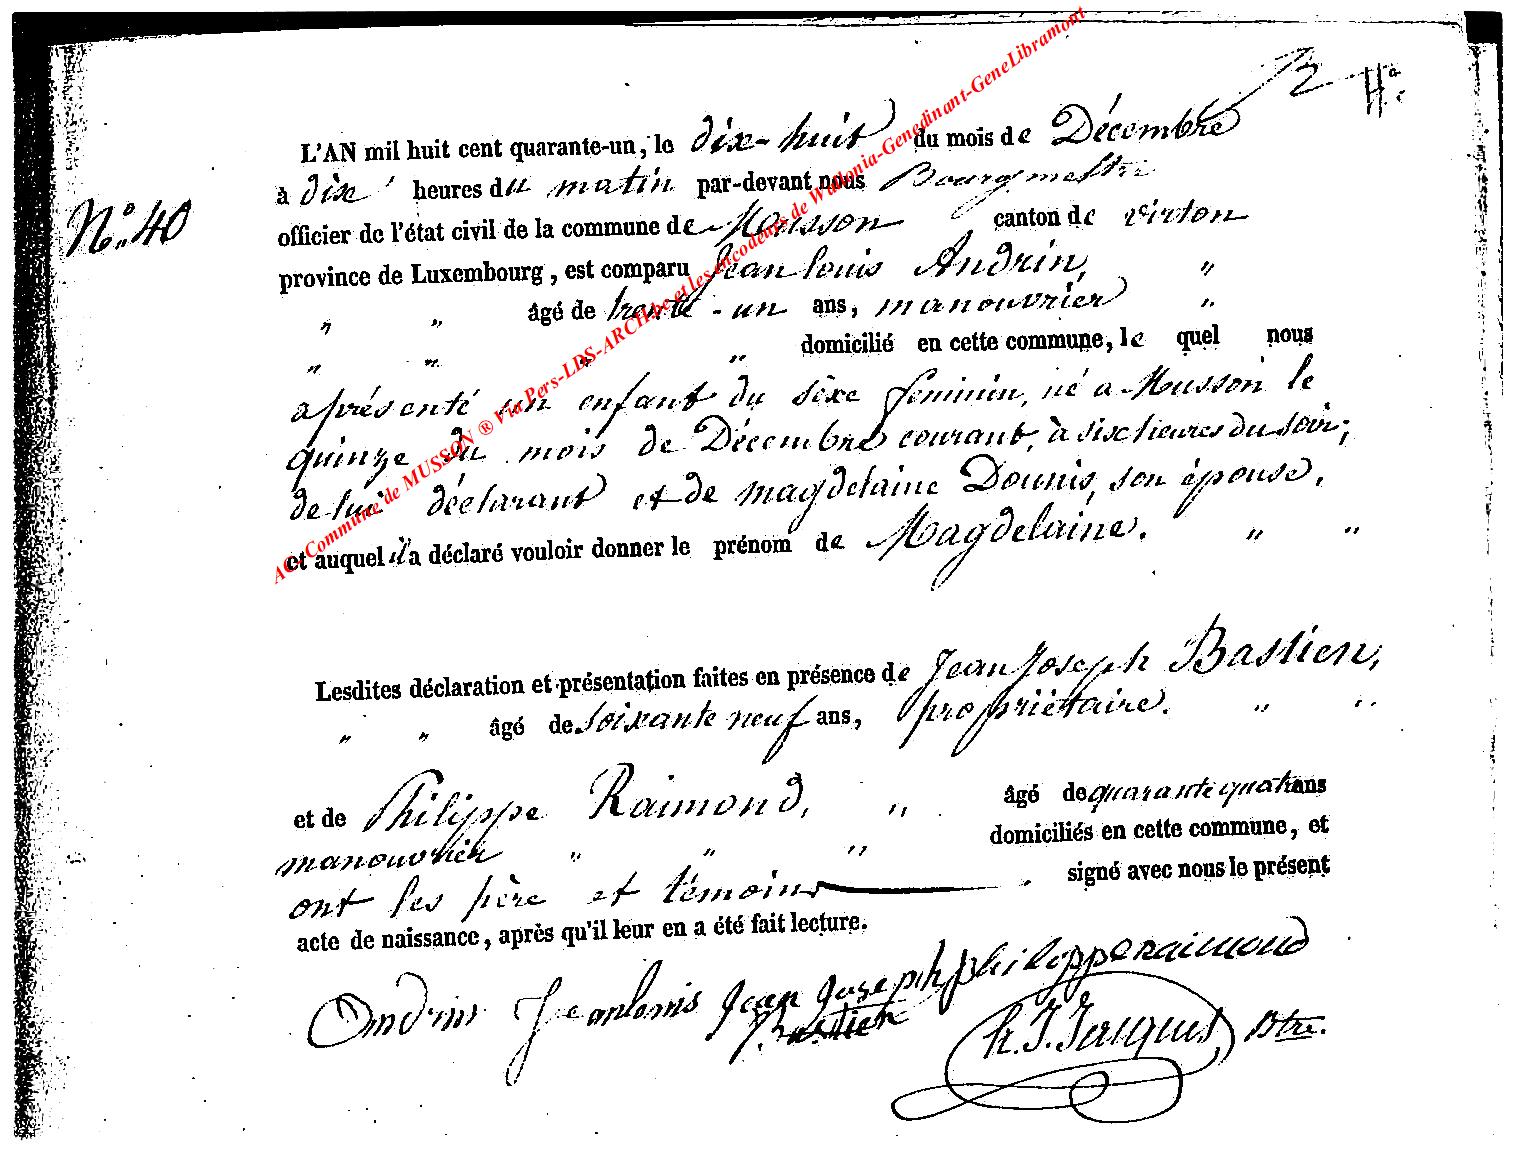 L'AN mil huit cent quarante-un, le dix-huit du mois de Décembre
N° 40
à dix heures du matin par-devant nous Bourgmestre
officier de l'état civil de la commune de Musson canton de virton
province de Luxembourg, est comparu Jean louis Andrin, "
" " âgé de trente-un ans, manouvrier "
" " " " domicilié en cette commune, le quel nous
a présenté un enfant du sèxe féminin, né a Musson le
quinze du mois de Décembre courant, à six heures du soir;
de lui déclarant et de magdelaine Dounis, son épouse.
et auquel il a déclaré vouloir donner le prénom de Magdelaine. " "
Lesdites déclaration et présentation faites en présence de Jean Joseph Bastien,
" " âgé de soixante neuf ans, propriétaire. " "
et de Philippe Raimond, " âgé de quarante quatre ans
manouvrier " " " domiciliés en cette commune, et
ont les père et témoins signé avec nous le présent
acte de naissance, après qu'il leur en a été fait lecture.
Ondrin Jeanlouis Jean Joseph philippe raimond
Bastien h. J. Jacques Btre.
AC-Commune de MUSSON ® Via Pers-LDS-ARCH.be et les encodeurs de Wallonia-Genedinant-GeneLibramont